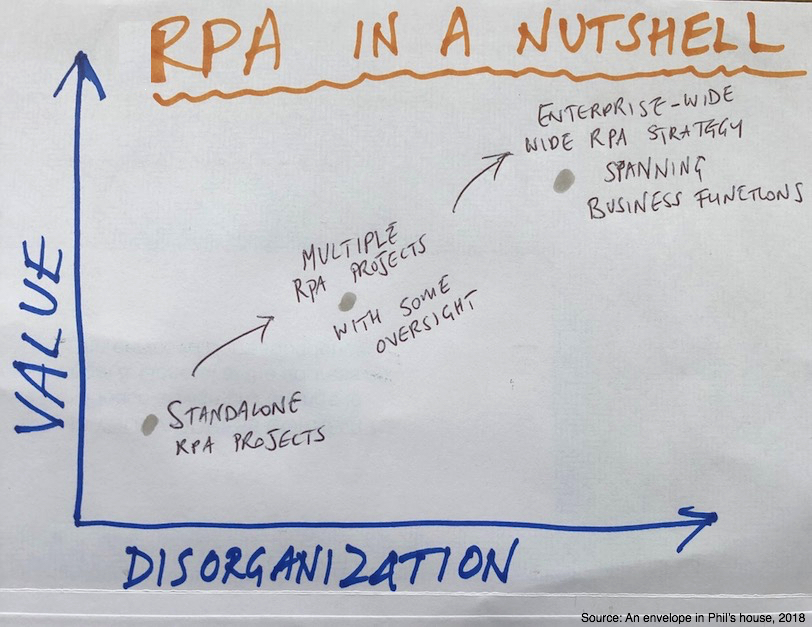 RPA IN A NUTSHELL
ENTERPRISE-WIDE
WIDE RPA STRATGGY
SPANNING
BUSINESS FUNCTIONS
MULTIPLE
RPA PROJECTS
WITH SOME
OVERSIGHT
STANDALONE
RPA PROJECTS
VALUE
DISORGANIZATION
Source: An envelope in Phil's house, 2018